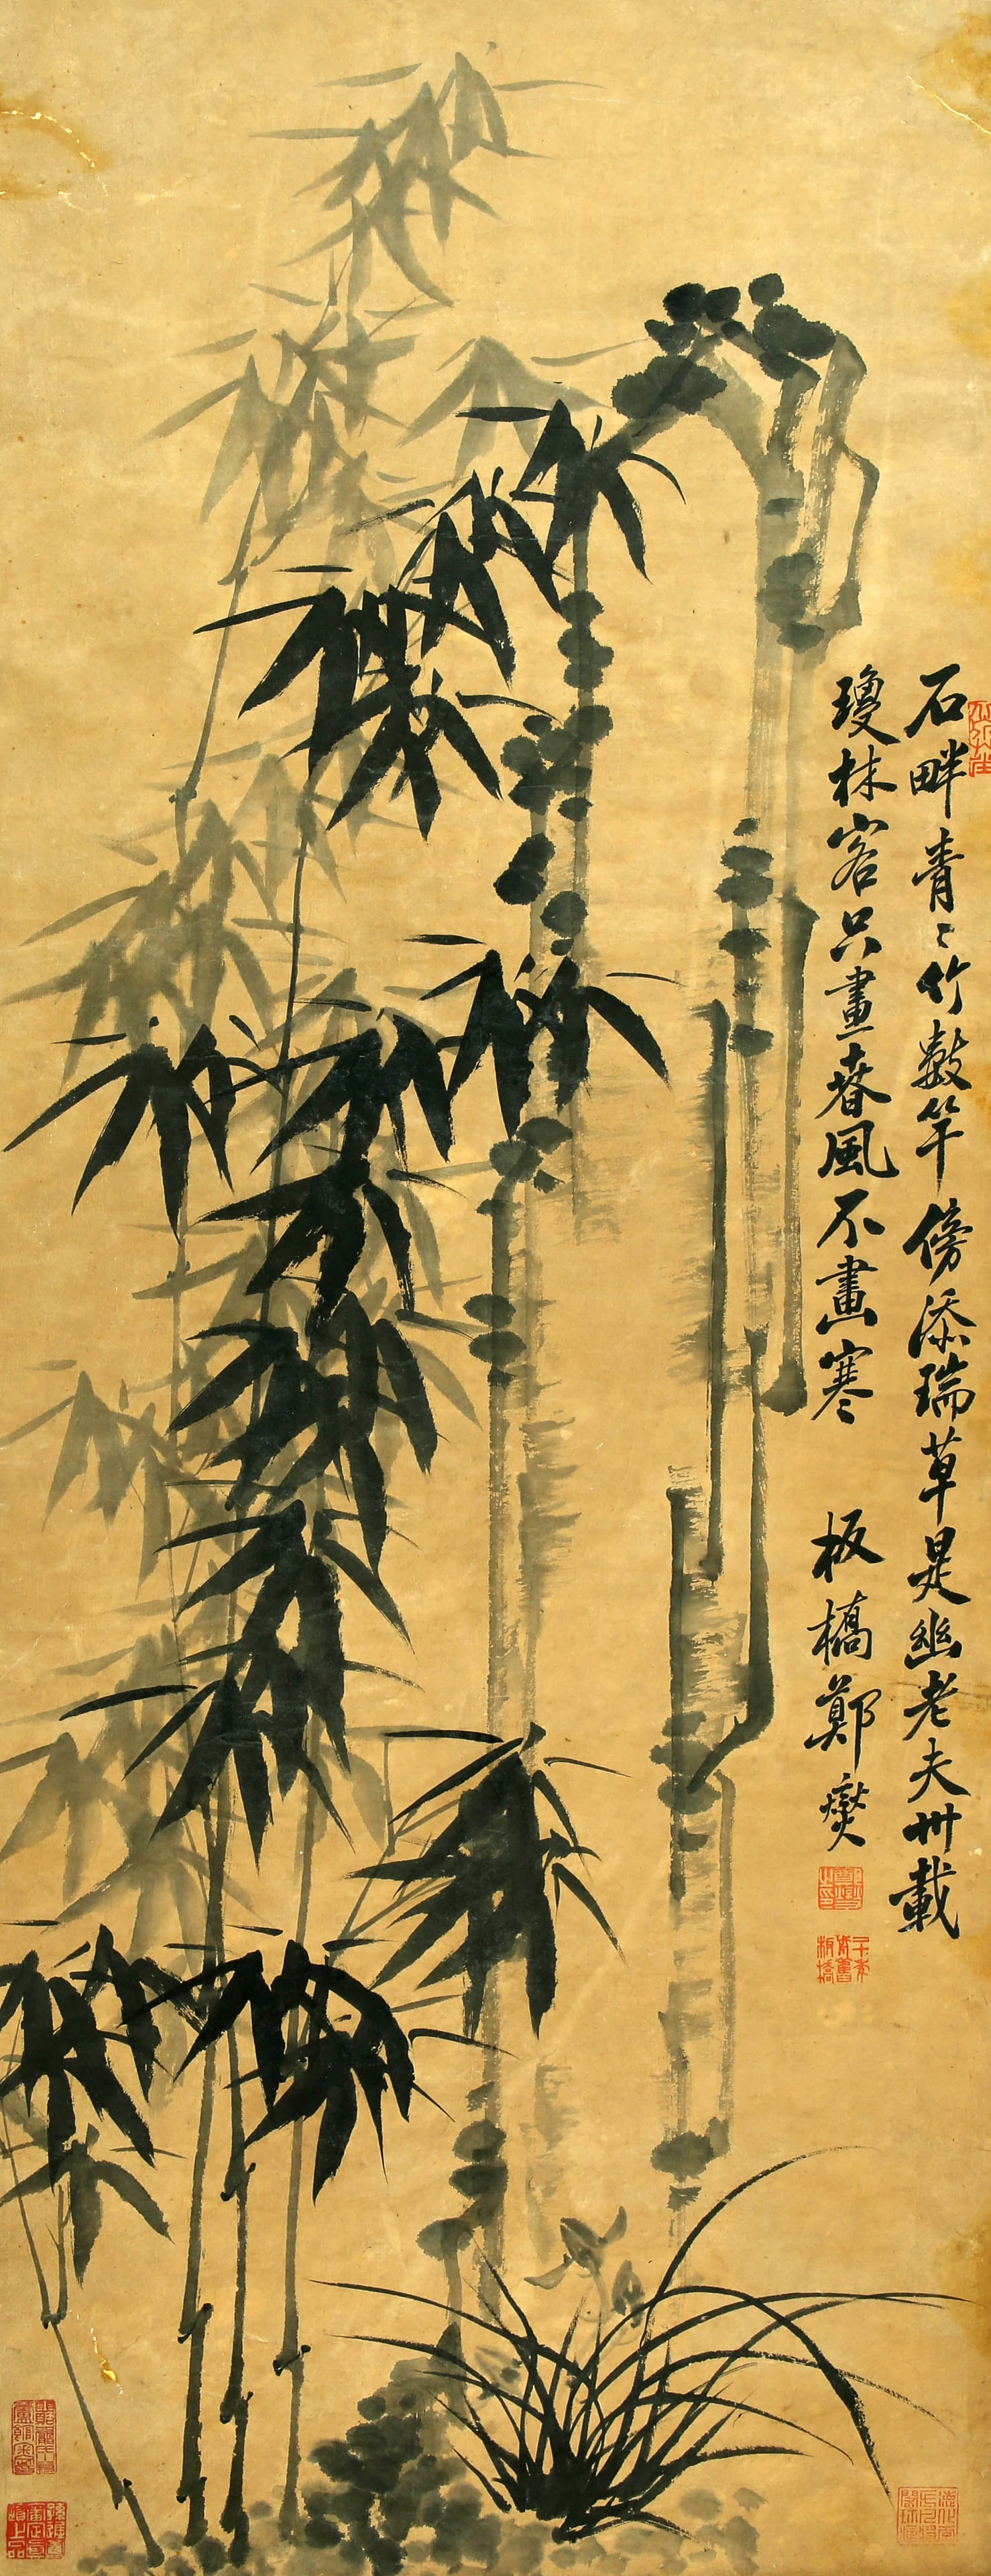 石畔青〻竹數竿傍添瑞草是幽老夫卅載
瓊林客只畫春風不畫寒
板橋鄭燮